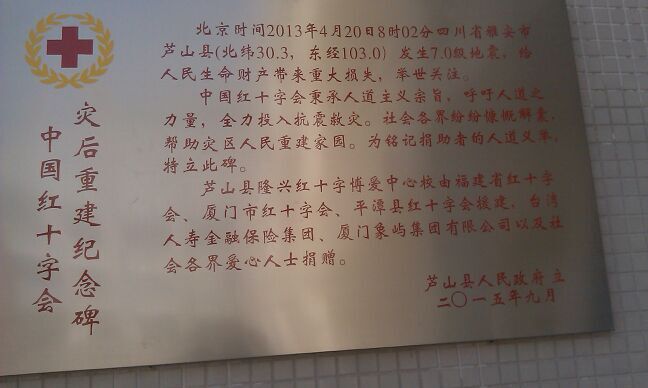 中国红十字会
灾后重建纪念碑
北京时间2013年4月20日8时02分四川省雅安市
芦山县(北纬30.3，东经103.0)发生7.0级地震，给
人民生命财产带来重大损失，举世关注。
中国红十字会秉承人道主义宗旨，呼吁人道之
力量，全力投入抗震救灾。社会各界纷纷慷慨解囊，
帮助灾区人民重建家园。为铭记捐助者的人道义举，
特立此碑。
芦山县隆兴红十字博爱中心校由福建省红十字
会、厦门市红十字会、平潭县红十字会援建，台湾
人寿金融保险集团、厦门象屿集团有限公司以及社
会各界爱心人士捐赠。
芦山县人民政府立
二〇一五年九月